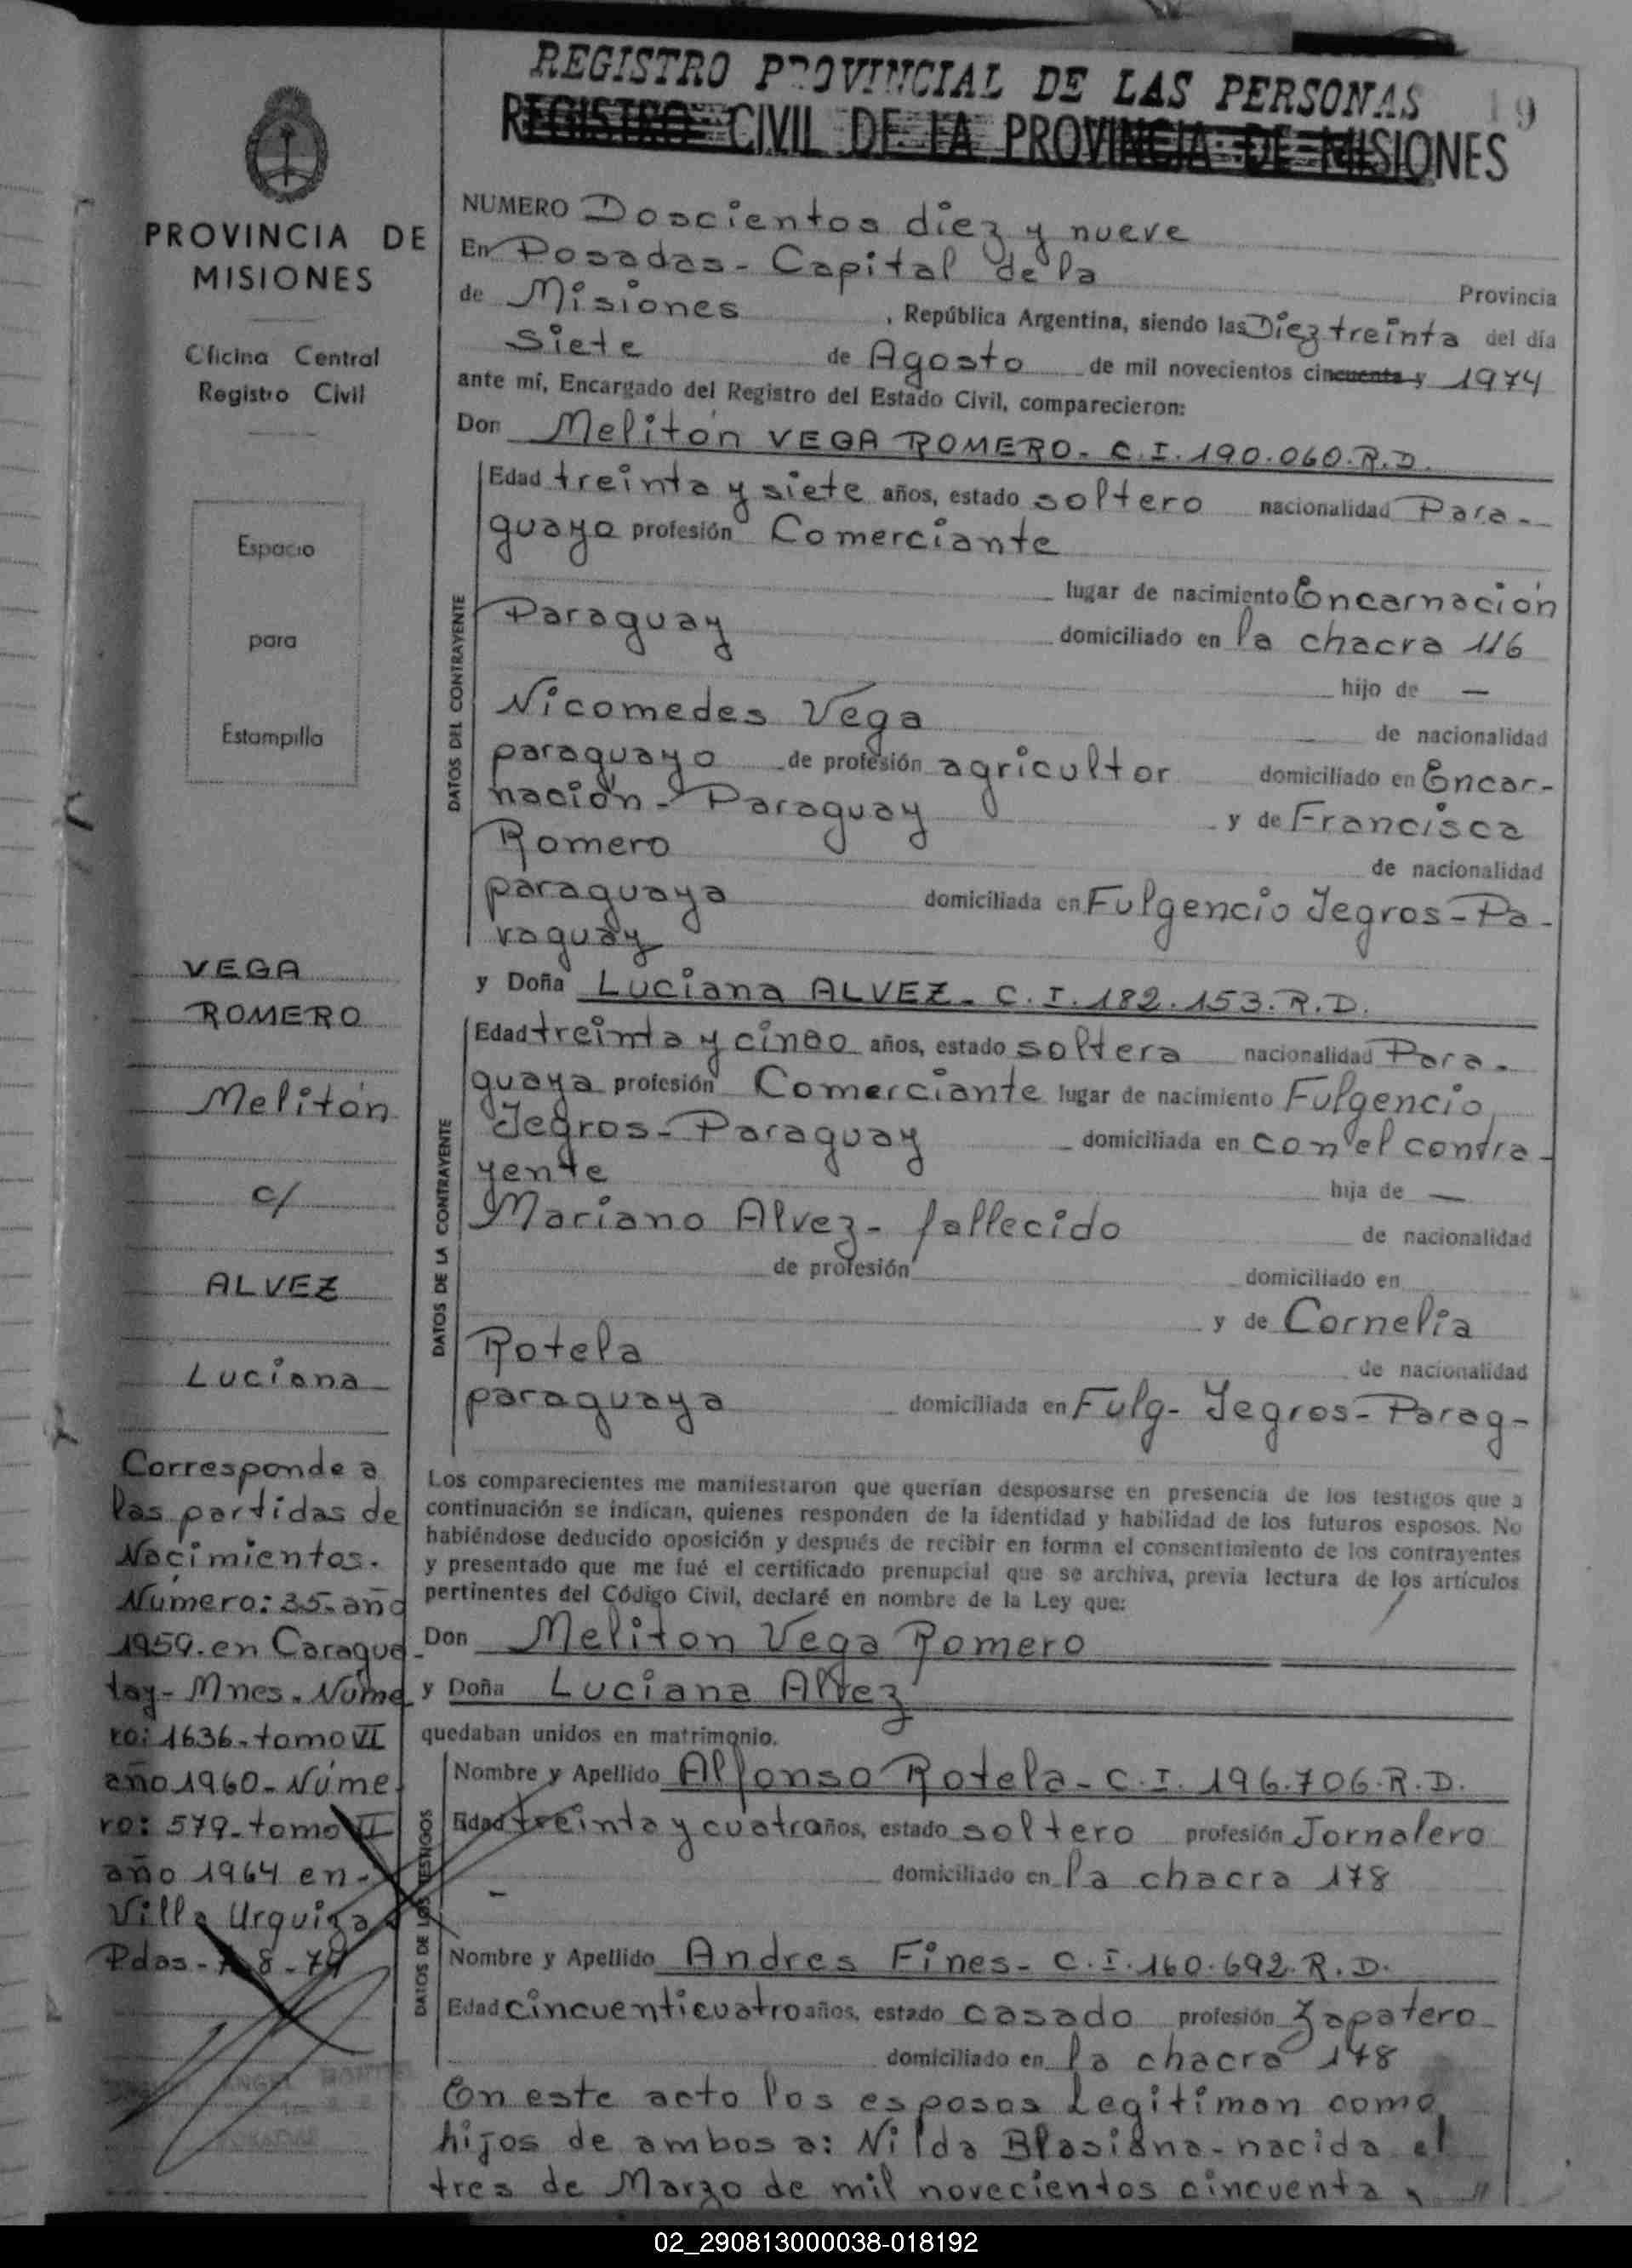 REGISTRO PROVINCIAL DE LAS PERSONAS
19
REGISTRO CIVIL DE LA PROVINCIA DE MISIONES
PROVINCIA DE
MISIONES
Oficina Central
Registro Civil
Espacio
para
Estampilla
VEGA
ROMERO
Melitón
c/
ALVEZ
Luciana
Corresponde a
las partidas de
Nacimientos.
Número: 35- año
1959. en Caragua-
tay- Mnes. Núme
ro: 1636- tomo VI
año 1960- Núme
ro: 579- tomo II
año 1964 en-
Villa Urquiza
Pdas- 7-8-74
ANGEL
NUMERO Doscientos diez y nueve
En Posadas- Capital de la Provincia
de Misiones, República Argentina, siendo las Diez treinta del día
siete de Agosto de mil novecientos cincuenta y 1974
ante mí, Encargado del Registro del Estado Civil, comparecieron:
Don Melitón VEGA ROMERO- C.I. 190.060. R.D.
DATOS DEL CONTRAYENTE
Edad treinta y siete años, estado soltero nacionalidad Para-
guayo profesión Comerciante
lugar de nacimiento Encarnación
Paraguay domiciliado en la chacra 116
hijo de —
Nicomedes Vega de nacionalidad
paraguayo de profesión agricultor domiciliado en Encar-
nación- Paraguay y de Francisca
Romero de nacionalidad
paraguaya domiciliada en Fulgencio Jegros- Pa-
raguay
y Doña Luciana ALVEZ- C.I. 182.153. R.D.
DATOS DE LA CONTRAYENTE
Edad treinta y cinco años, estado soltera nacionalidad Para-
guaya profesión Comerciante lugar de nacimiento Fulgencio
Jegros- Paraguay domiciliada en con el contra-
yente hija de —
Mariano Alvez- fallecido de nacionalidad
de profesión domiciliado en
y de Cornelia
Rotela de nacionalidad
paraguaya domiciliada en Fulg- Jegros- Parag-
Los comparecientes me manifestaron que querían desposarse en presencia de los testigos que a
continuación se indican, quienes responden de la identidad y habilidad de los futuros esposos. No
habiéndose deducido oposición y después de recibir en forma el consentimiento de los contrayentes
y presentado que me fué el certificado prenupcial que se archiva, previa lectura de los artículos
pertinentes del Código Civil, declaré en nombre de la Ley que:
Don Meliton Vega Romero
y Doña Luciana Alvez
quedaban unidos en matrimonio.
DATOS DE LOS TESTIGOS
Nombre y Apellido Alfonso Rotela- C.I. 196.706. R.D.
Edad treinta y cuatro años, estado soltero profesión Jornalero
domiciliado en la chacra 178
Nombre y Apellido Andres Fines- C.I. 160.692. R.D.
Edad cincuenticuatro años, estado casado profesión Zapatero
domiciliado en la chacra 148
En este acto los esposos legitiman como
hijos de ambos a: Nilda Blasiana- nacida el
tres de Marzo de mil novecientos cincuenta y //
02_290813000038-018192